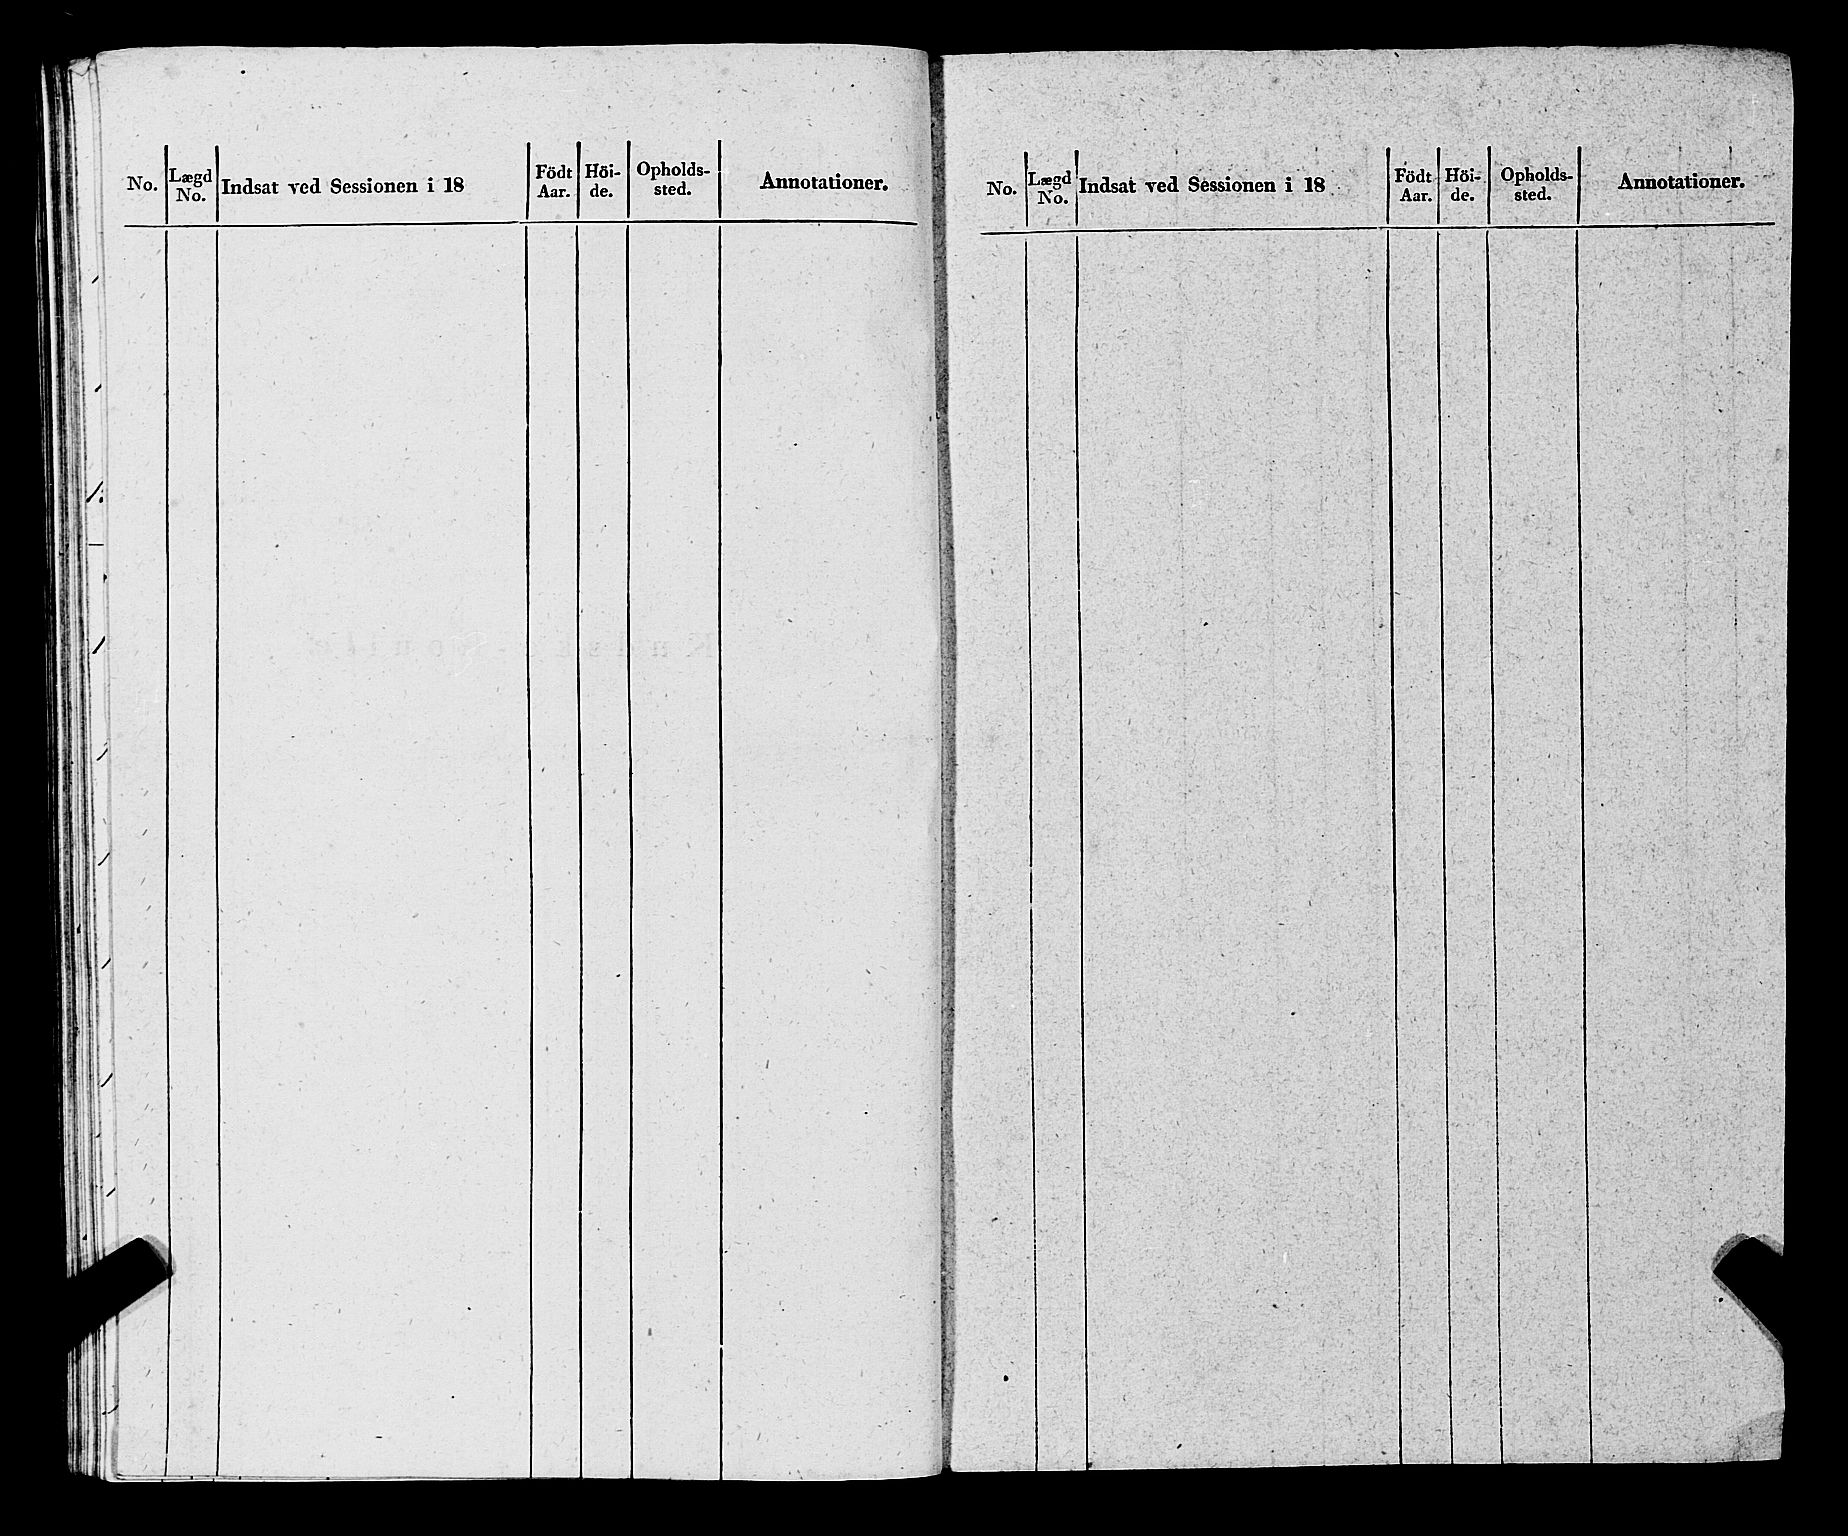 No. Lægd No. Indsat ved Sessionen i 18 Födt Aar. Höi-de. Opholds-sted. Annotationer.
No. Lægd No. Indsat ved Sessionen i 18 Födt Aar. Höi-de. Opholds-sted. Annotationer.